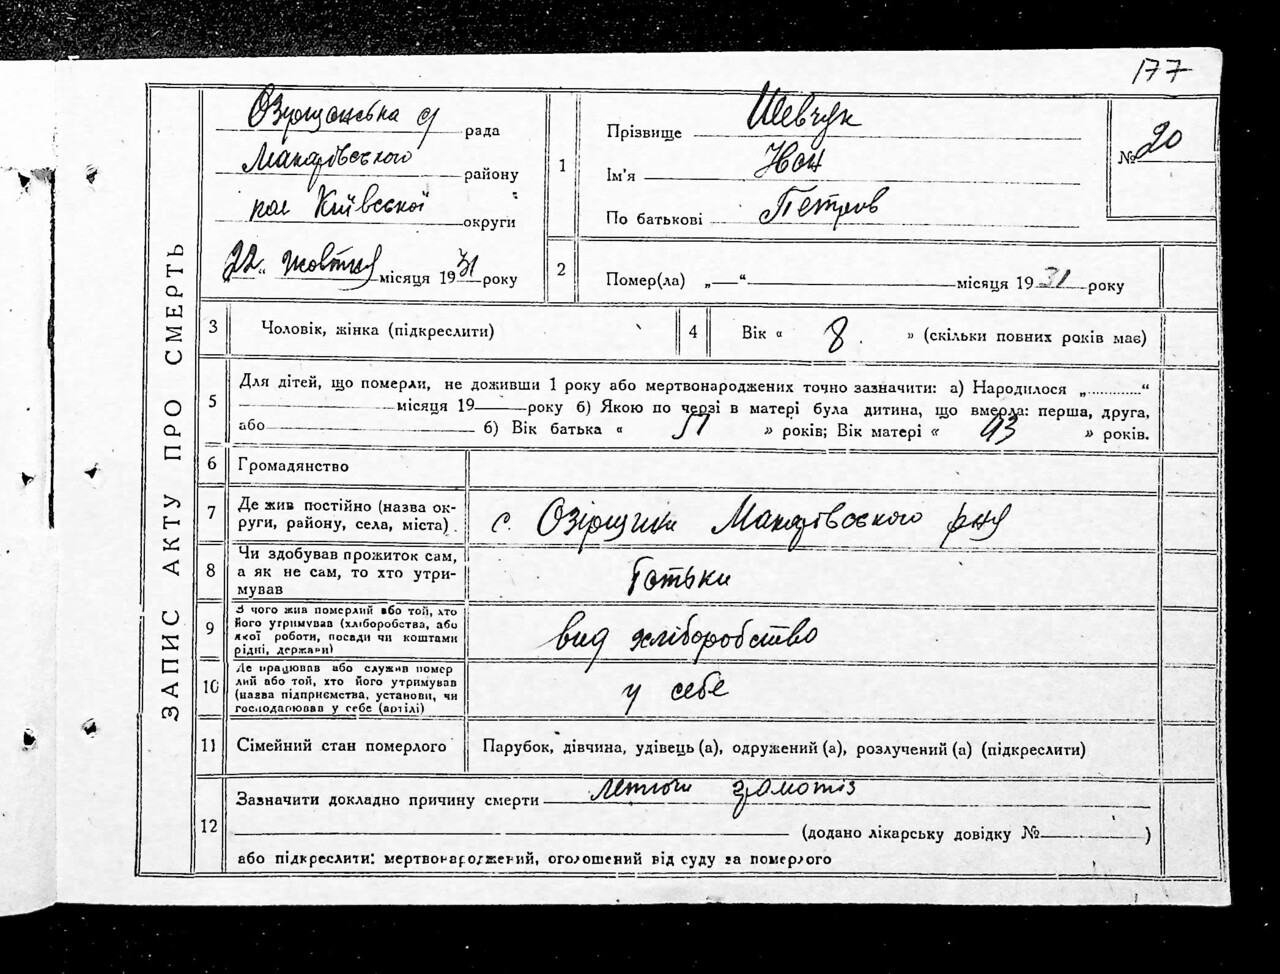 177
ЗАПИС АКТУ ПРО СМЕРТЬ
Озірщанська с/ рада
Макарівського району
Київської округи
„22“ жовтня місяця 1931 року
1
Прізвище Шевчук
Ім'я Іван
По батькові Петров
№ 20
2
Помер(ла) „—“ місяця 1931 року
3
Чоловік, жінка (підкреслити)
4
Вік « 8 » (скільки повних років має)
5
Для дітей, що померли, не доживши 1 року або мертвонароджених точно зазначити: а) Народилося „..........“
місяця 19 року б) Якою по черзі в матері була дитина, що вмерла: перша, друга,
або б) Вік батька « 51 » років; Вік матері « 43 » років.
6
Громадянство
7
Де жив постійно (назва ок-
руги, району, села, міста).
с. Озірщини Макарівського р-ну
8
Чи здобував прожиток сам,
а як не сам, то хто утри-
мував
Батьки
9
З чого жив померлий або той, хто
його утримував (хліборобства, або
якої роботи, посади чи коштами
рідні, держави)
від хліборобство
10
Де працював або служив помер
лий або той, хто його утримував
(назва підприємства, установи, чи
господарював у себе (артілі)
у себе
11
Сімейний стан померлого
Парубок, дівчина, удівець (а), одружений (а), розлучений (а) (підкреслити)
12
Зазначити докладно причину смерти
(додано лікарську довідку № )
або підкреслити: мертвонароджений, оголошений від суду за померлого